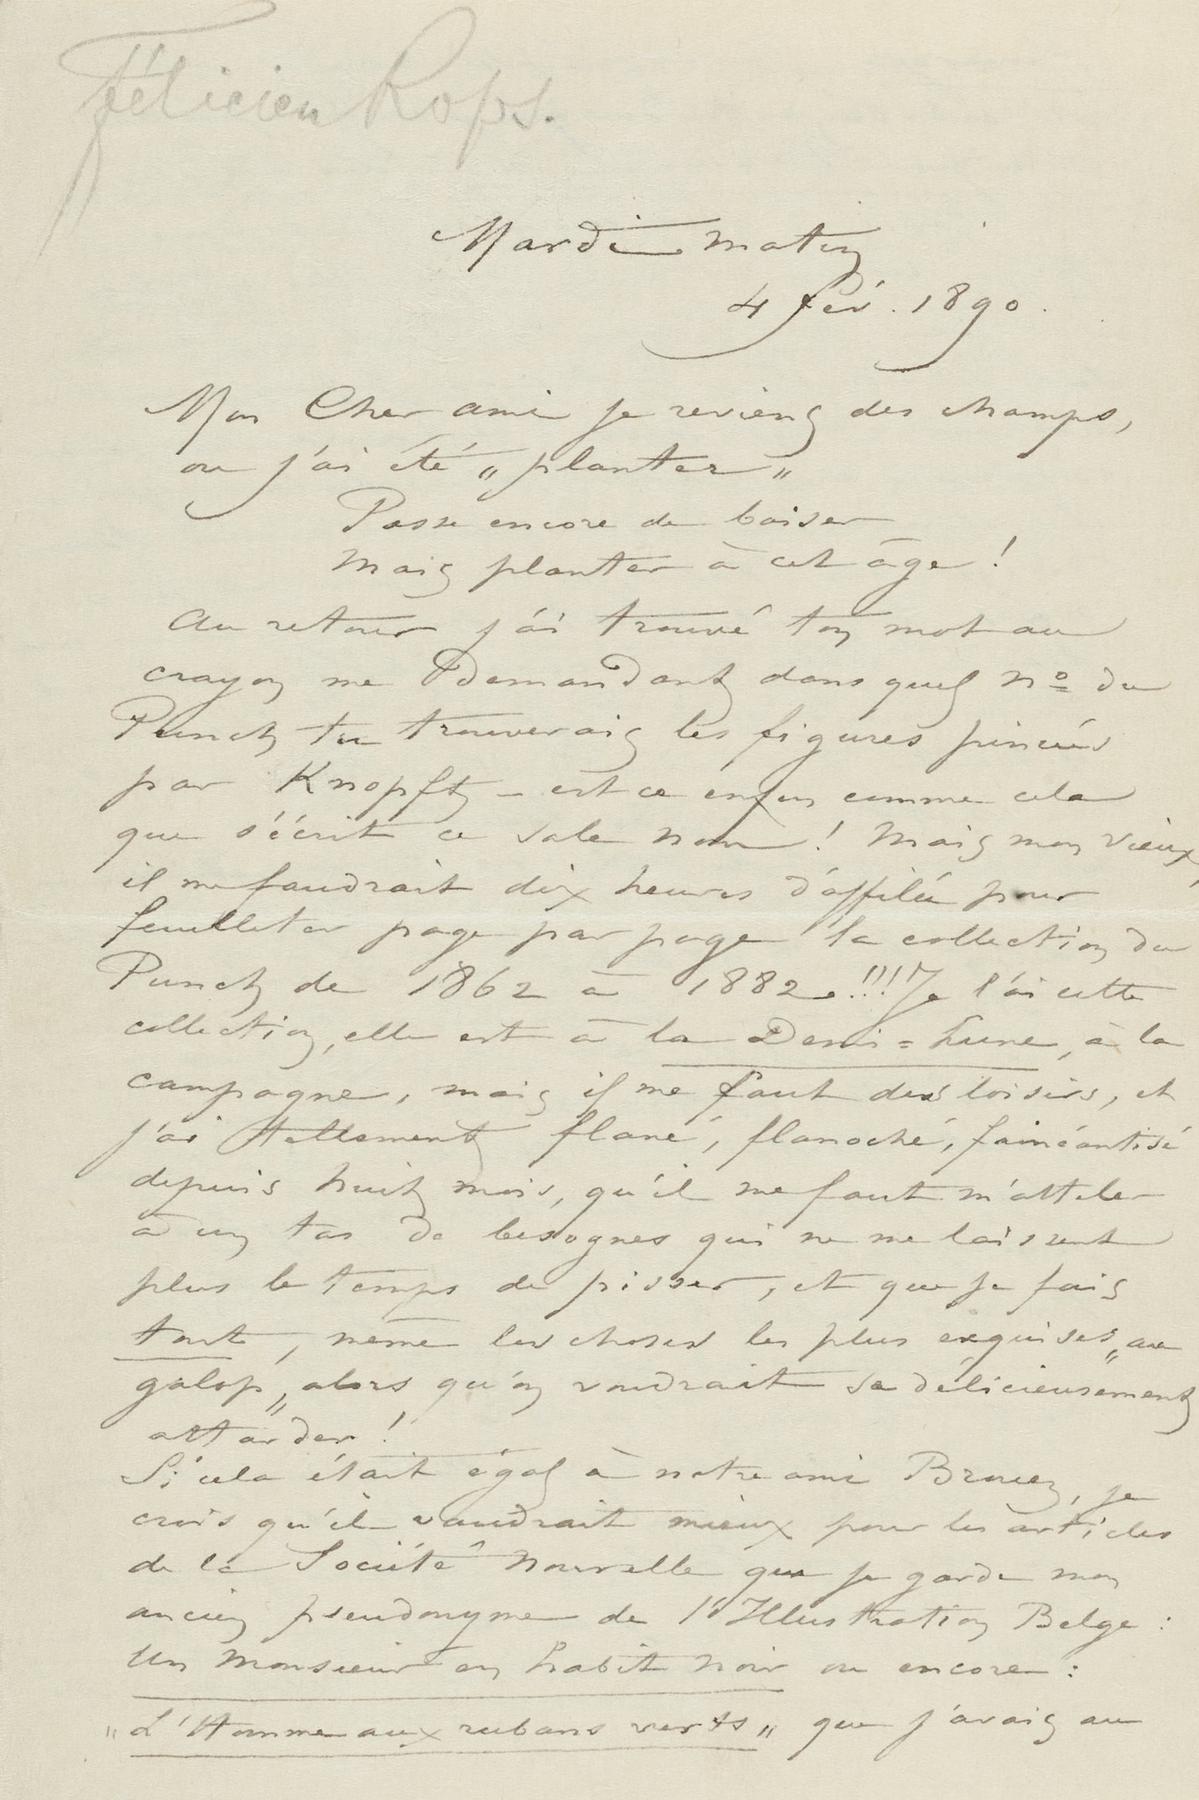 Félicien Rops.
Mardi matin
4 fév. 1890.
Mon Cher ami je reviens des champs,
ou j'ai été „ planter „
Passe encore de baiser
Mais planter à cet âge !
Au retour j'ai trouvé ton mot au
crayon me demandant dans quel nº du
Punch tu trouverais les figures pincées
par Knopff – est ce enfin comme cela
que s'écrit ce sale nom ! Mais mon vieux,
il me faudrait dix heures d'affilée pour
feuilleter page par page la collection du
Punch de 1862 à 1882.!!! Je l'ai cette
collection, elle est à la Demi=Lune, à la
campagne, mais il me faut des loisirs, et
j'ai tellement flané, flanoché, fainéantisé
depuis huit mois, qu'il me faut m'atteler
à un tas de besognes qui ne me laissent
plus le temps de pisser, et que je fais
tout, même les choses les plus exquises „au
galop„ alors qu'on voudrait se délicieusement
attarder !
Si cela était égal à notre ami Brouez, je
crois qu'il vaudrait mieux pour les articles
de la Société Nouvelle que je garde mon
ancien pseudonyme de l'Illustration Belge :
Un Monsieur en habit noir ou encore :
„L'Homme aux rubans verts„ que j'avais au